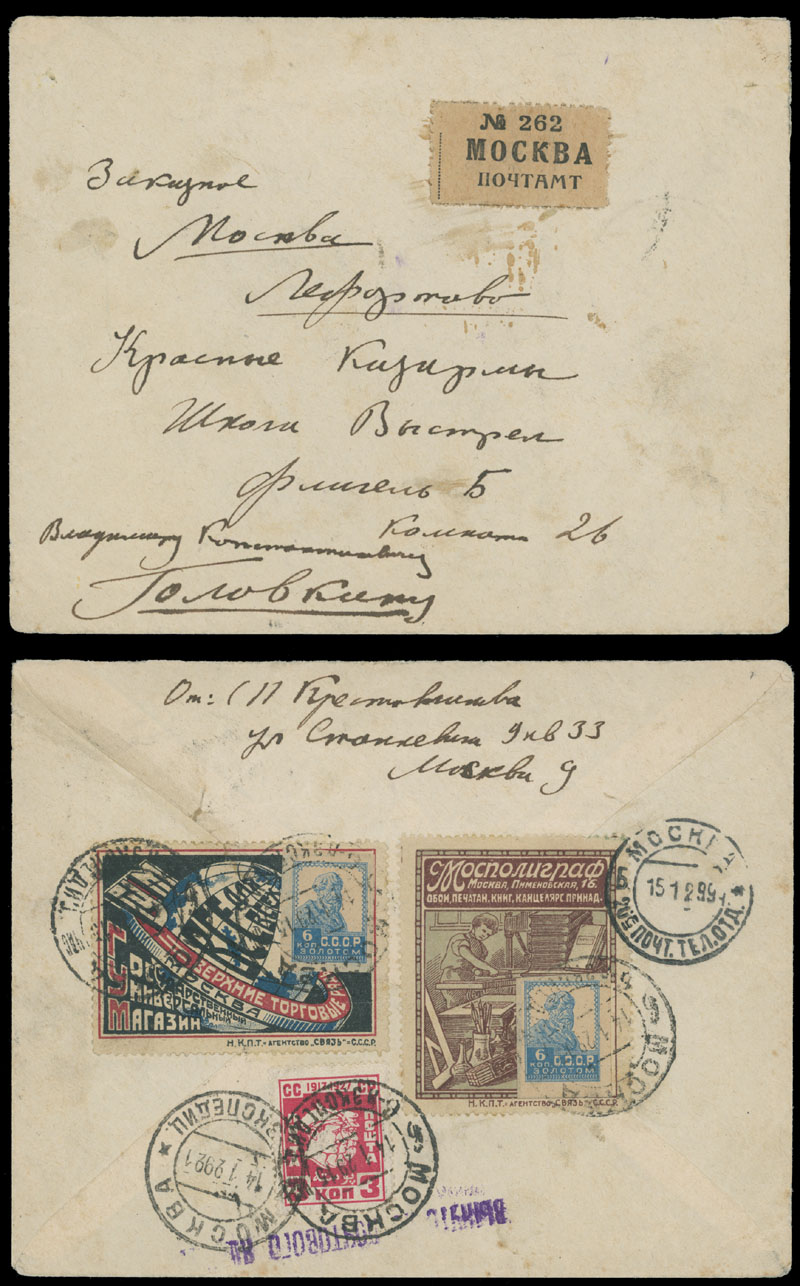 № 262
МОСКВА
ПОЧТАМТ
Заказное
Москва
Лефортово
Красные Казармы
Школа Выстрел
Флигель Б
Комната 26
Владимиру Константиновичу
Головкину
От: С П Крестовникова
ул Станкевича 9 кв 33
Москва 9
ГУМ
ВЕРХНИЕ ТОРГОВЫЕ
МОСКВА
ГОСУДАРСТВЕННЫЙ
УНИВЕРСАЛЬНЫЙ
МАГАЗИН
Н.К.П.Т.-АГЕНТСТВО „СВЯЗЬ"-С.С.С.Р.
6 С.С.С.Р.
КОП. ЗОЛОТОМ
Мосполиграф
МОСКВА, ПИМЕНОВСКАЯ, 16.
ОБОИ, ПЕЧАТАН. КНИГ, КАНЦЕЛЯРС. ПРИНАД.
6 С.С.С.Р.
КОП. ЗОЛОТОМ
Н.К.П.Т.-АГЕНТСТВО „СВЯЗЬ"-С.С.С.Р.
МОСКВА
Б
15 1 29
ПОЧТ. ТЕЛ. ОТД.
МОСКВА
1917-1927
ПОЧТА
КОП 3
МОСКВА
ЭКСПЕДИЦ
14 1 29
МОСКВА
ВЫНУТО
ПОЧТОВОГО ЯЩ